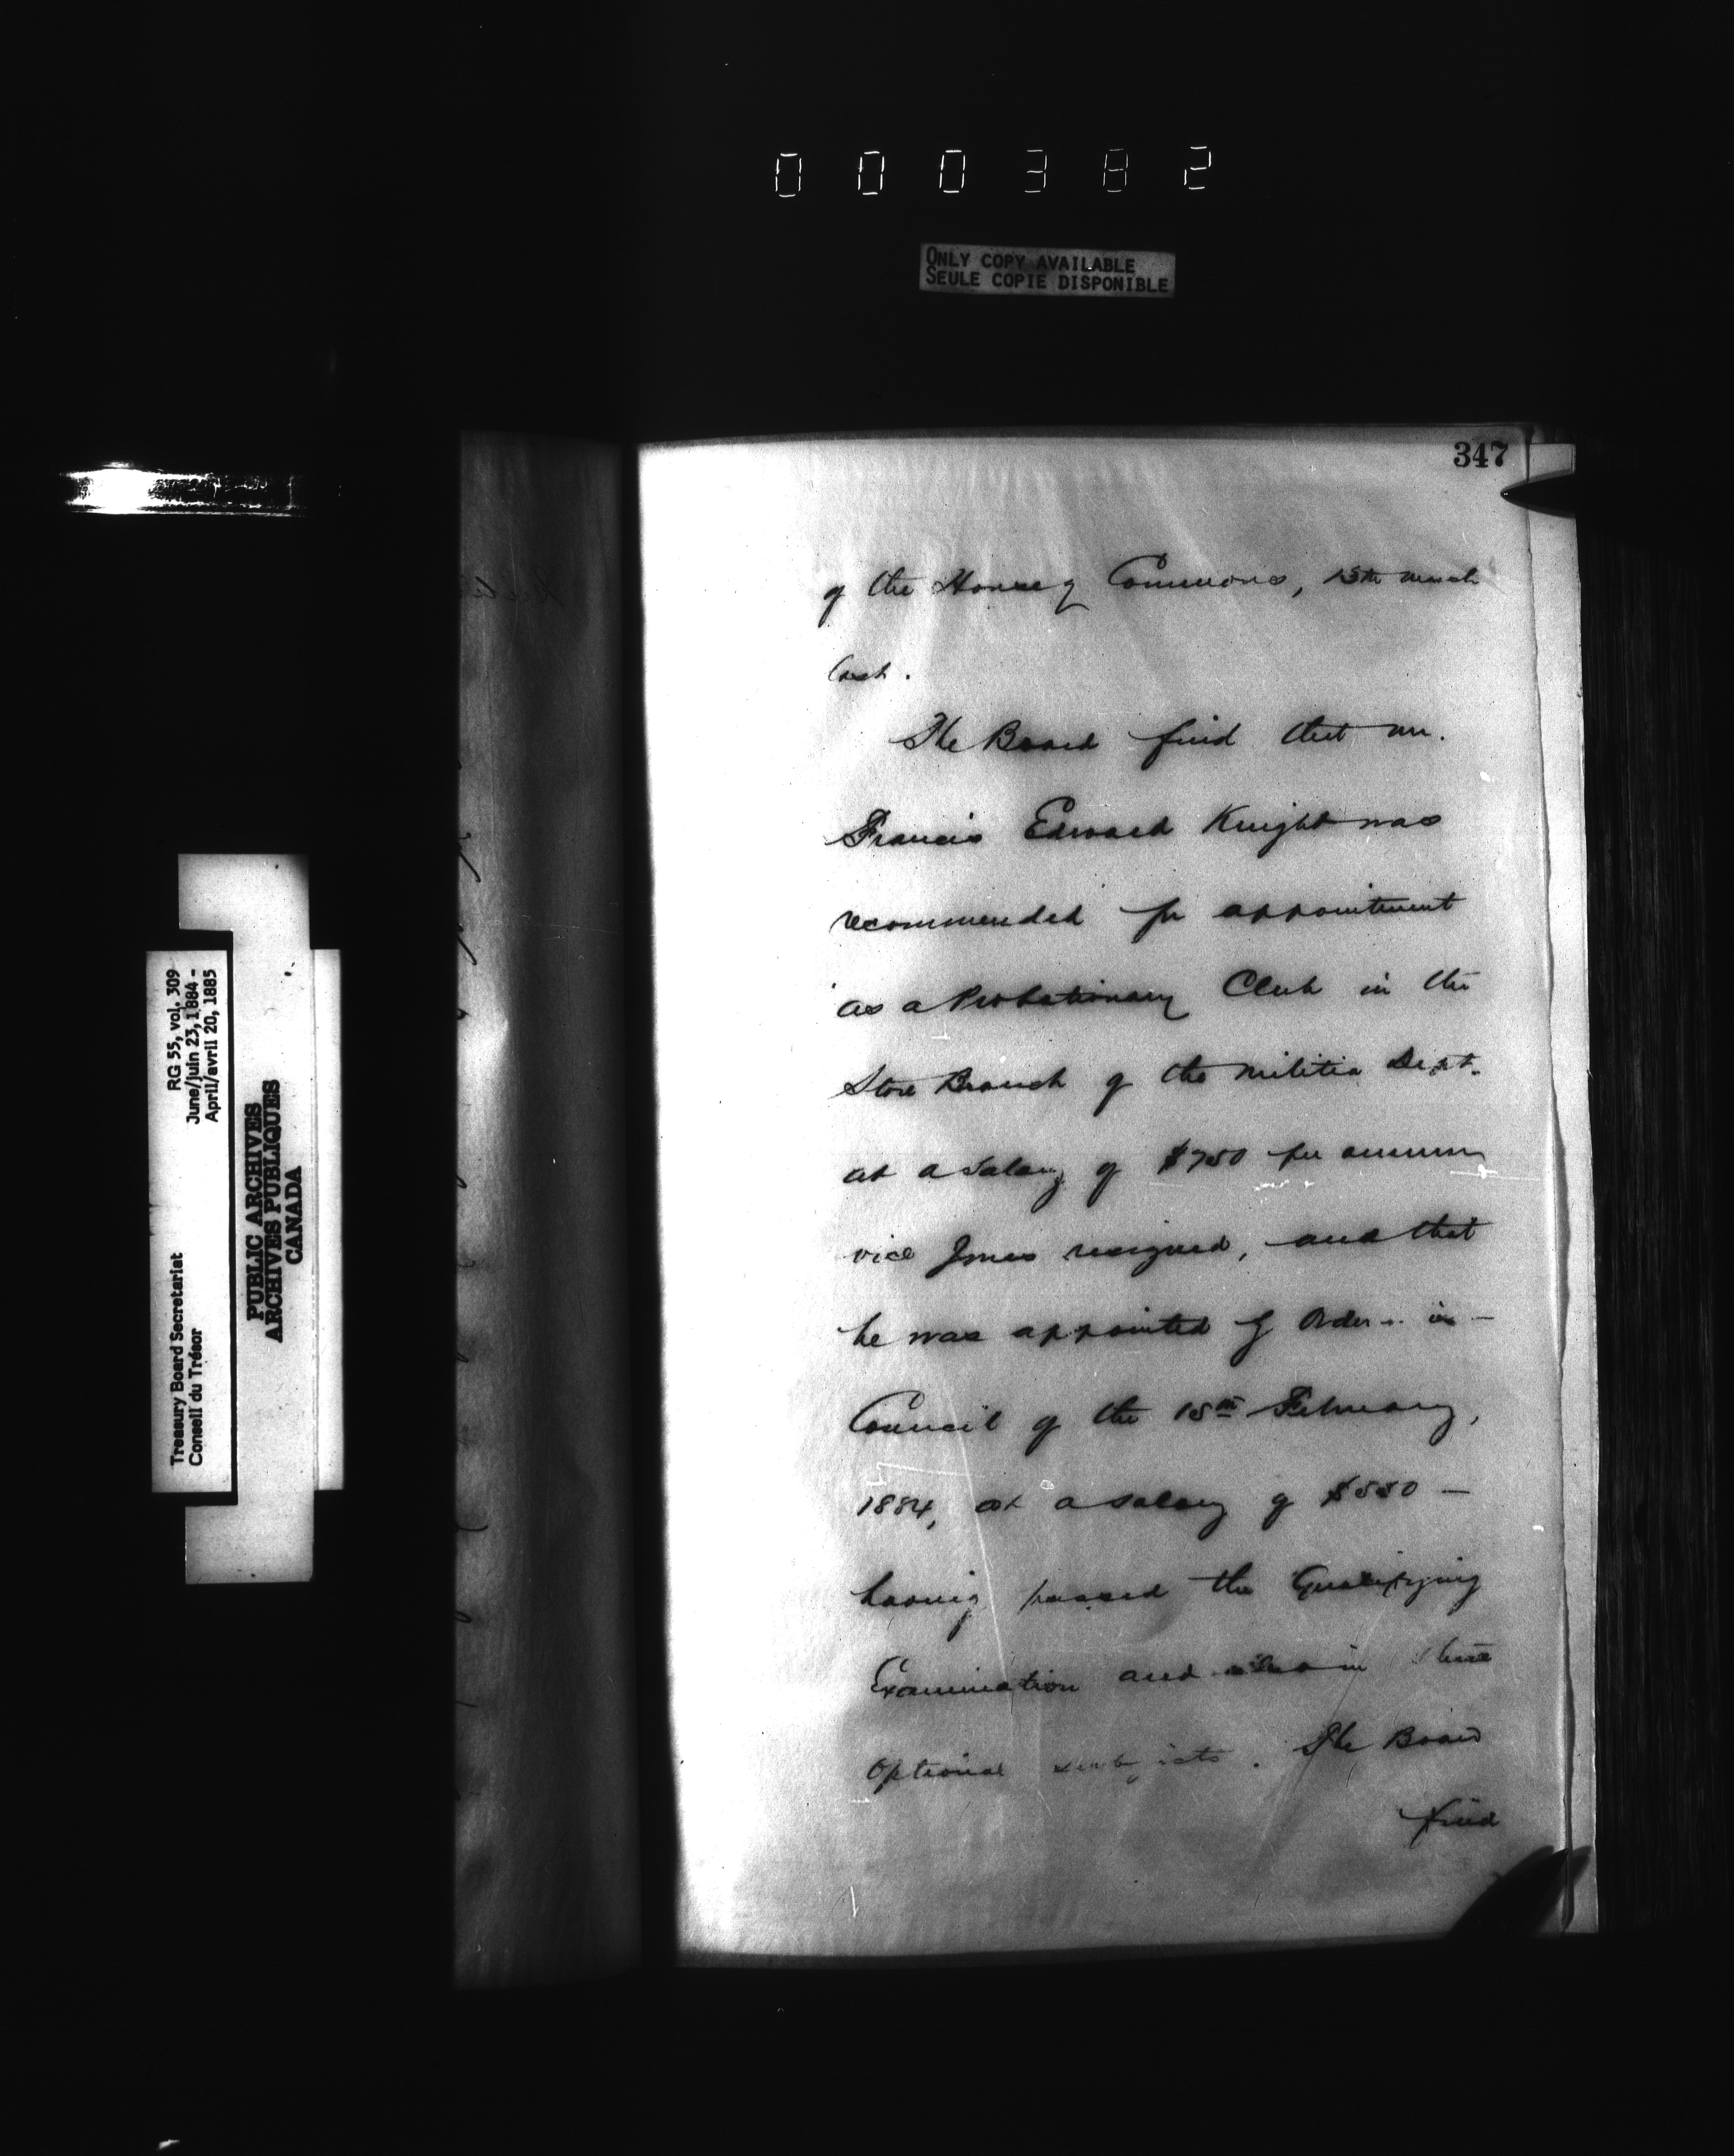 000382
ONLY COPY AVAILABLE
SEULE COPIE DISPONIBLE
347
of the House of Commons, 13th March
last.
The Board find that Mr.
Francis Edward Knight was
recommended for appointment
as a Probationary Clerk in the
Store Branch of the Militia Dept.
at a salary of $750 per annum
vice Jones resigned, and that
he was appointed by Order-in-
Council of the 15th February,
1884, at a salary of $550 —
having passed the Qualifying
Examination and also in three
Optional subjects. The Board
find
RG 55, vol. 309
June/juin 23, 1884 -
April/avril 20, 1885
Treasury Board Secretariat
Conseil du Trésor
PUBLIC ARCHIVES
ARCHIVES PUBLIQUES
CANADA